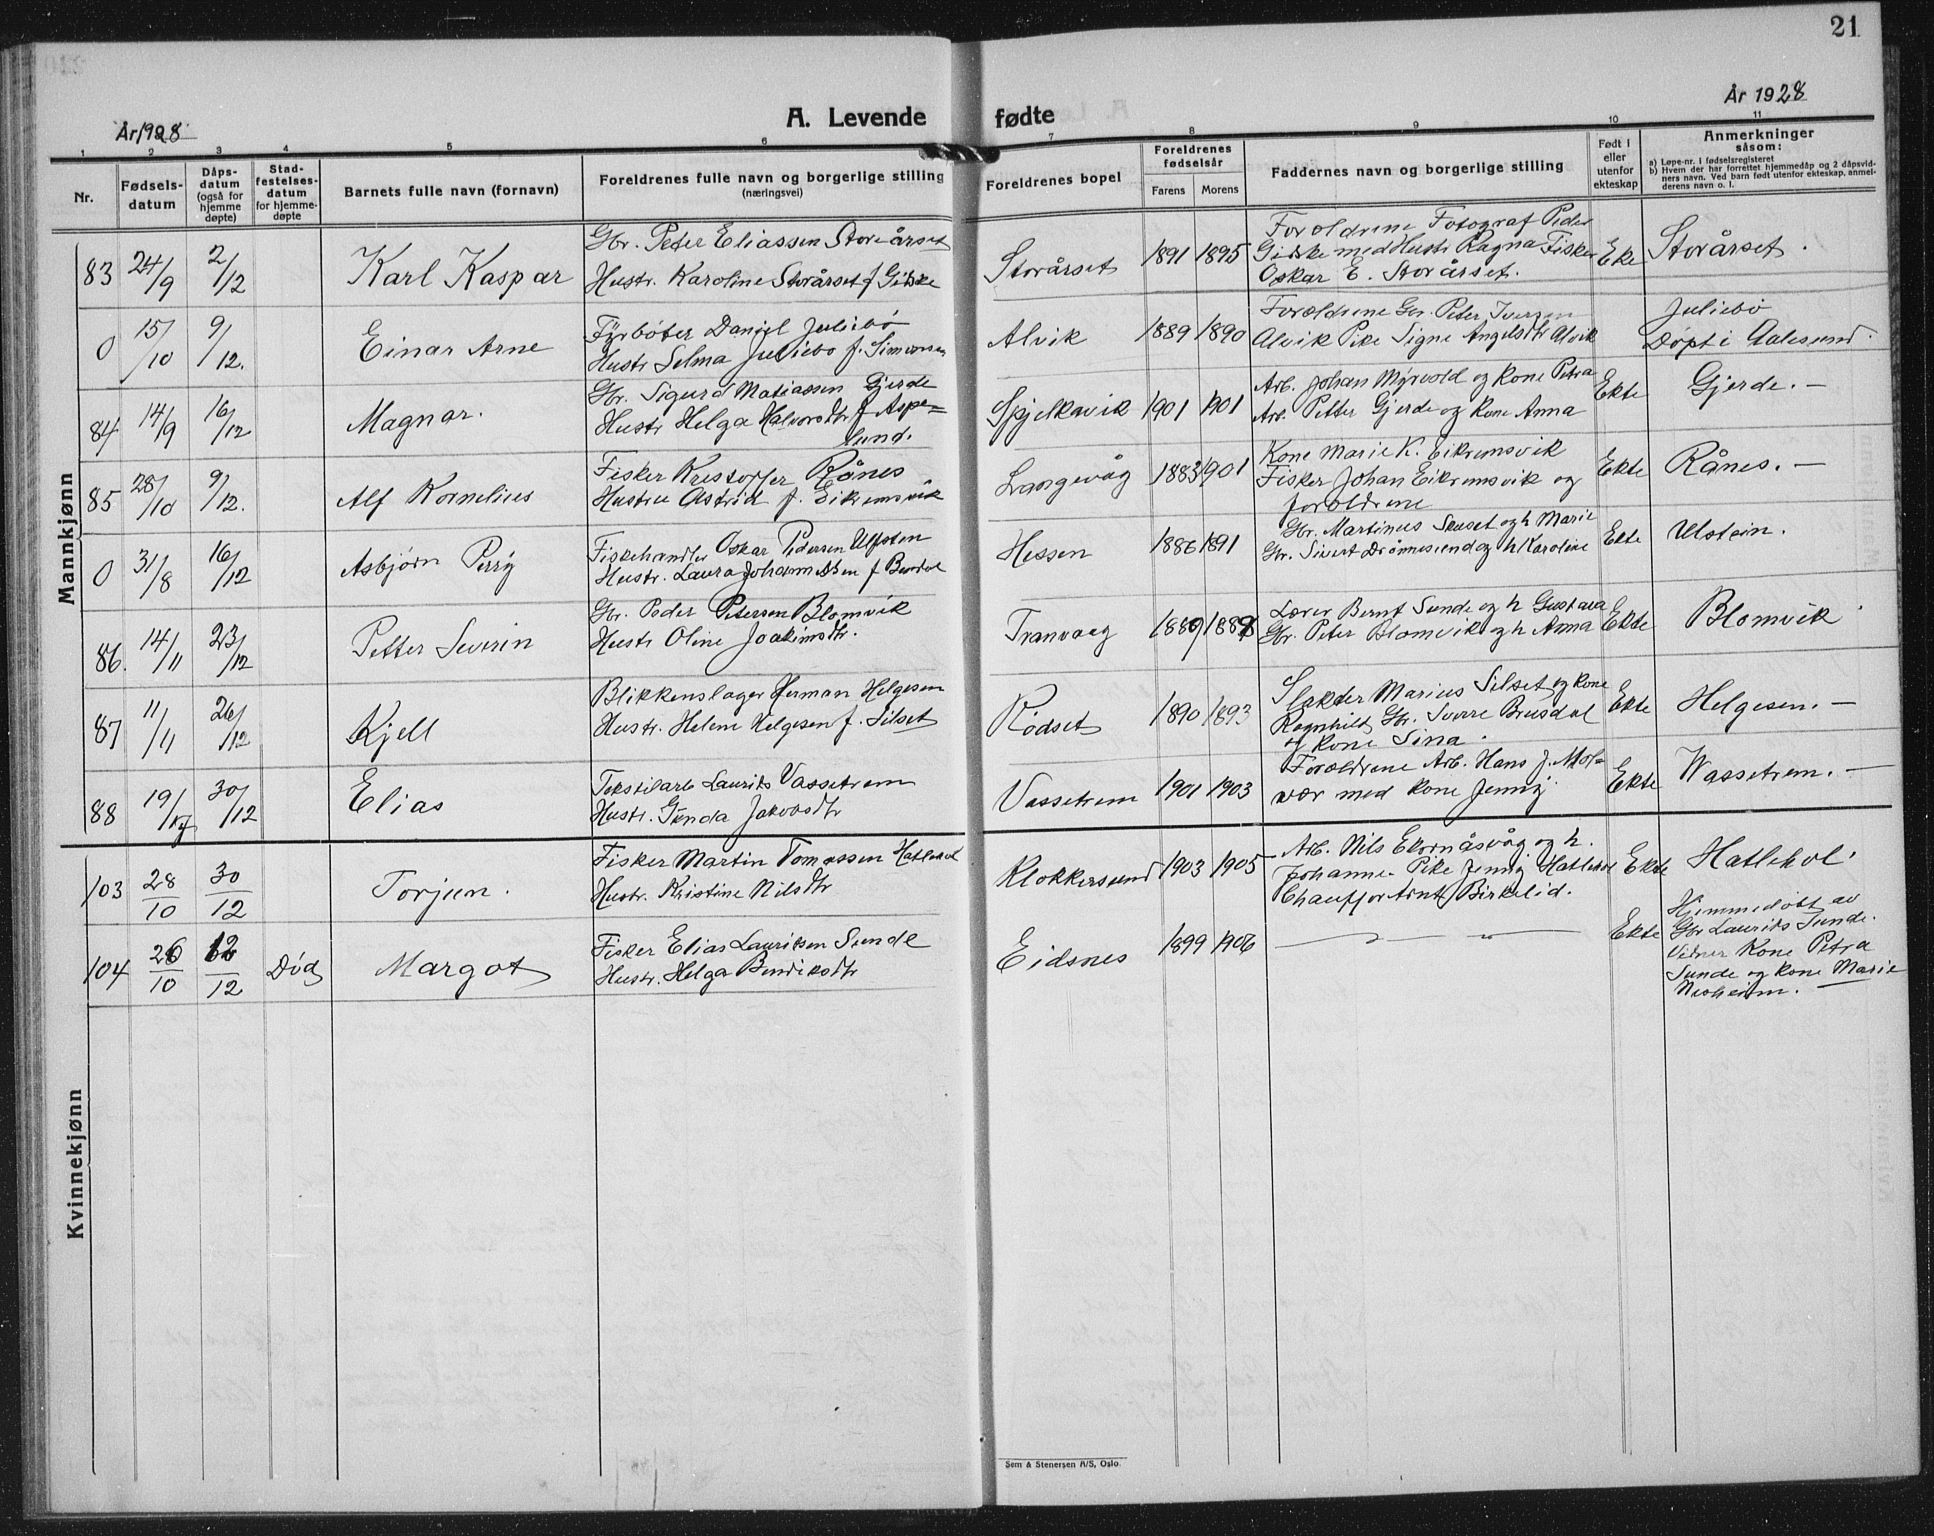 21
År 1928
A. Levende fødte
År 1928
1 2 3 4 5 6 7 8 9 10 11
Nr.
Fødsels-
datum
Dåps-
datum
(også for
hjemme
døpte)
Stad-
festelses-
datum
for hjemme-
døpte
Barnets fulle navn (fornavn)
Foreldrenes fulle navn og borgerlige stilling
(næringsvei)
Foreldrenes bopel
Foreldrenes
fødselsår
Farens Morens
Faddernes navn og borgerlige stilling
Født i
eller
utenfor
ekteskap
Anmerkninger
såsom:
a) Løpe-nr. i fødselsregisteret
b) Hvem der har forrettet hjemmedåp og 2 dåpsvid-
ners navn. Ved barn født utenfor ekteskap, anmel-
derens navn o. l.
Mannkjønn
83 24/9 2/12 Karl Kaspar
Gbr. Peter Eliassen Storeårset
Hustr. Karoline Storårset f Gidske
Storårset 1891 1895
Foroldrene Fotograf Peder
Gidske med Hustr Ragna Fisker
Oskar E. Storårset.
Ekte Storårset.
0 15/10 9/12. Einar Arne
Fyrbøter Daniel Juliebø
Hustr Selma Juliebø f. Simonsen
Alvik 1889 1890
Forældrene Gr. Peter Iversen
Alvik Pike Signe Angelsdtr Alvik
Juliebø
Døpt i Aalesund.
84 14/9 16/12 Magnar.
Gbr. Sigurd Matiassen Gjerde
Hustr Helga Halvorsdtr f Aspe=
sund.
Spjelkavik 1901 1901
Arb. Johan Myrvold og kone Petra
Arb. Petter Gjerde og kone Anna
Ekte Gjerde. —
85 28/10 9/12. Alf Kornelius
Fisker Kristoffer Rånes
Hustru Astrid f. Eikremsvik
Langevåg 1883 1901
Kone Marie K. Eikremsvik
Fisker Johan Eikremsvik og
foroldrene
Ekte Rånes. —
0 31/8 16/12 Asbjørn Perry
Fiskehandler Oskar Pedersen Ulfsten
Hustr. Laura Johannessen f
Hessen 1886 1891
Gbr. Martinus og h Marie
Gr. Sivert Drønnesund og h Karoline
Ekte Ulstein.
86. 14/11 23/12 Petter Severin
Gbr. Peder Petersen Blomvik
Hustr Oline Joakimsdtr.
Tranvaag
Lærer Bernt Sunde og h Gustava
Gr. Peter Blomvik og h Anna
Ekte Blomvik
87 11/11 26/12 Kjell
Blikkenslager Herman Helgesen
Hustr. Helene Helgesen f. Silset
Rødset 1890 1893
Slakter Marius Silset og kone
Ragnhild, Gr. Sverre Brusdal
og kone Sina.
Ekte Helgesen. —
88 19/ 30/12 Elias
Tekstilarb Laurits Vassetrem
Hustr. Gunda Jakobsdtr
Vassetrem 1901 1903
Foroldrene Arb. Hans J. Mol=
vær med kone Jenny
Ekte Wassetrem. —
Kvinnekjønn
103 28/10 30/12 Torjun.
Fisker Martin Tomassen Hatlehol
Hustr. Kristine Nilsdtr
Klokkersund 1903 1905
Arb. Nils Ekornåsvåg og h.
Johanne. Pike Jenny Hatlehol
Chauffør Arnt Birkelid.
Ekte Hatlehol.
104 26/10 12/12 Død Margot
Fisker Elias Lauritsen Sunde
Hustr. Helga Bendiksdtr
Eidsnes 1899 1906
— " — " —
Ekte
Hjemmedøbt av
Gbr Laurits Sunde.
Vidner Kone Petra
Sunde og kone Marie
Sem & Stenersen A/S, Oslo.